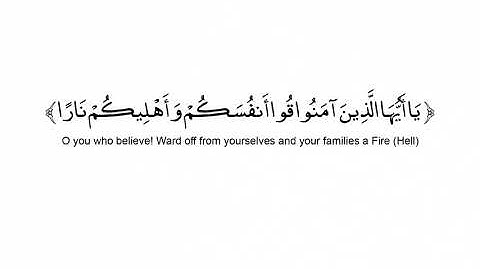 ﴿ يَا أَيُّهَا الَّذِينَ آمَنُوا قُوا أَنفُسَكُمْ وَأَهْلِيكُمْ نَارًا ﴾
O you who believe! Ward off from yourselves and your families a Fire (Hell)